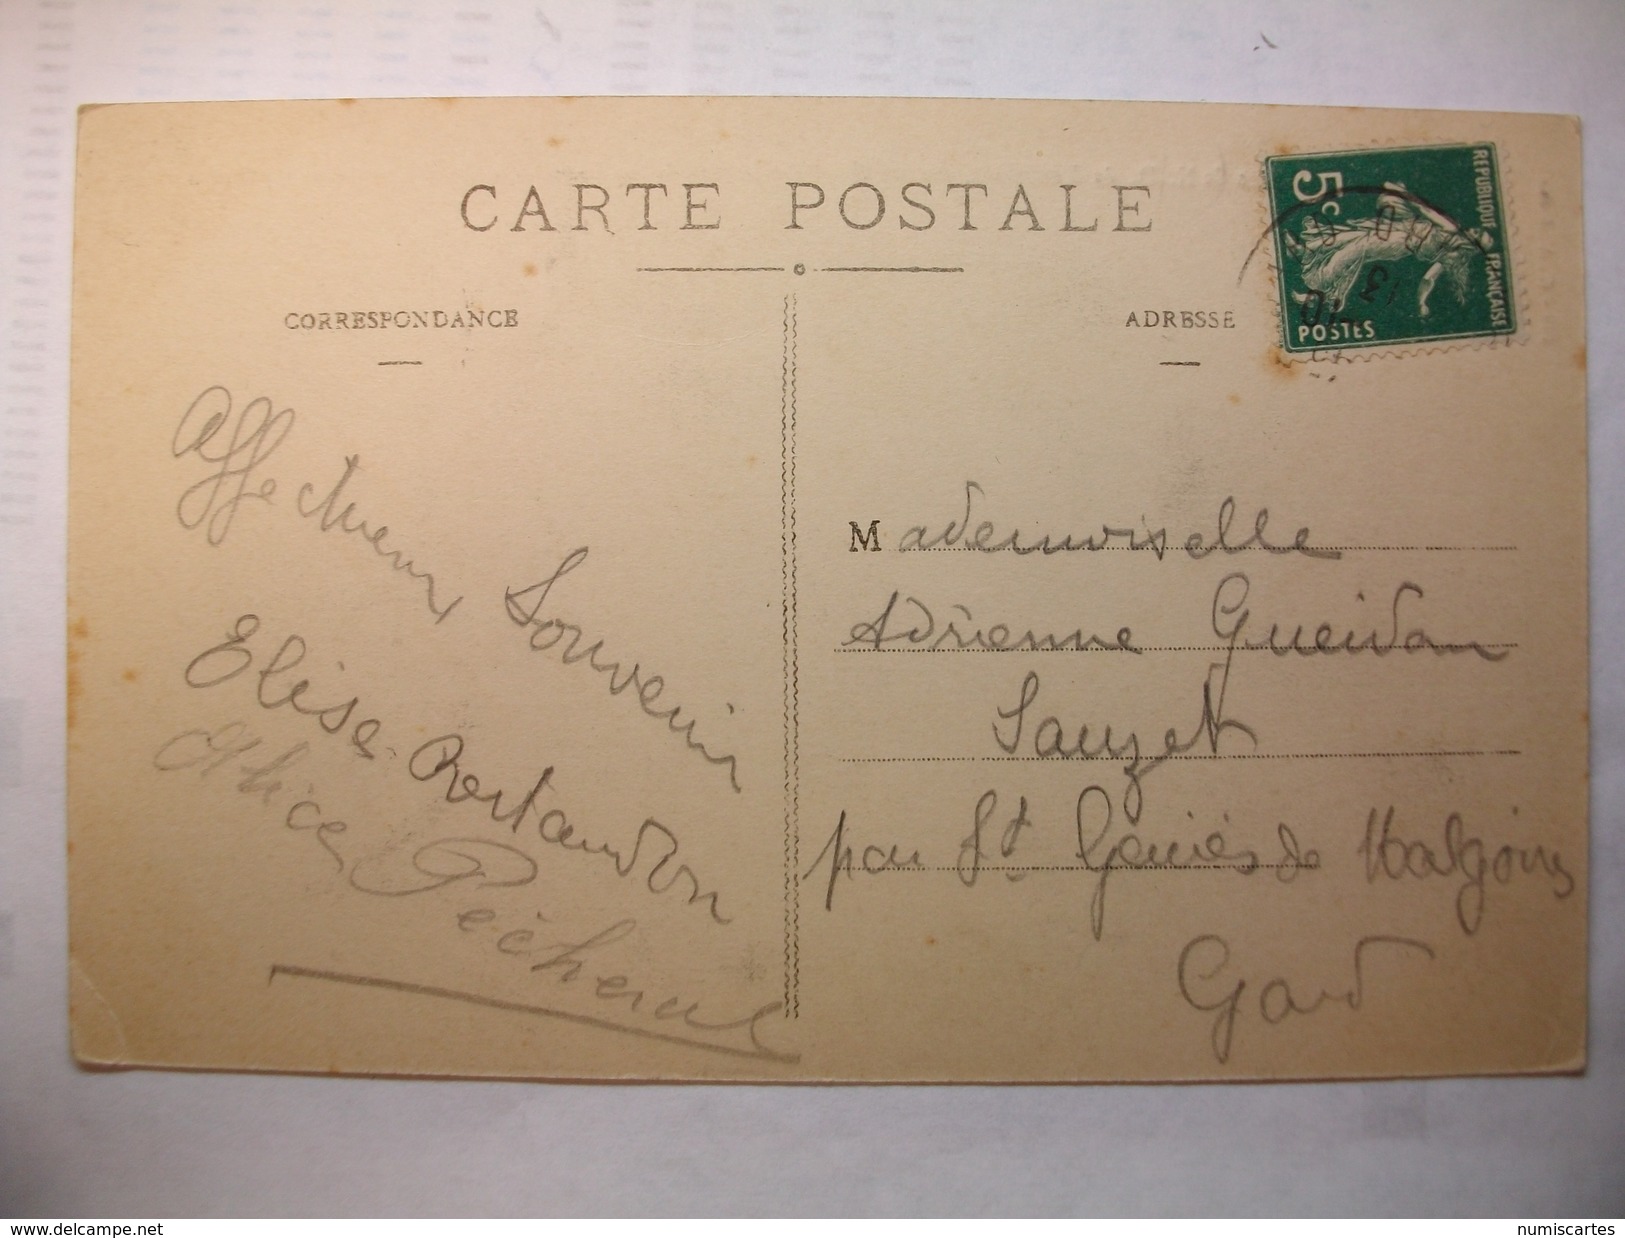 CARTE POSTALE
CORRESPONDANCE
ADRESSE
REPUBLIQUE FRANÇAISE
5c
POSTES
GARD
13
Affectueux Souvenir
Elise Rostaudon
Alice Pécheral
Mademoiselle
Adrienne Gueidan
Sauzet
par St Geniès de Malgoires
Gard
www.delcampe.net
numiscartes